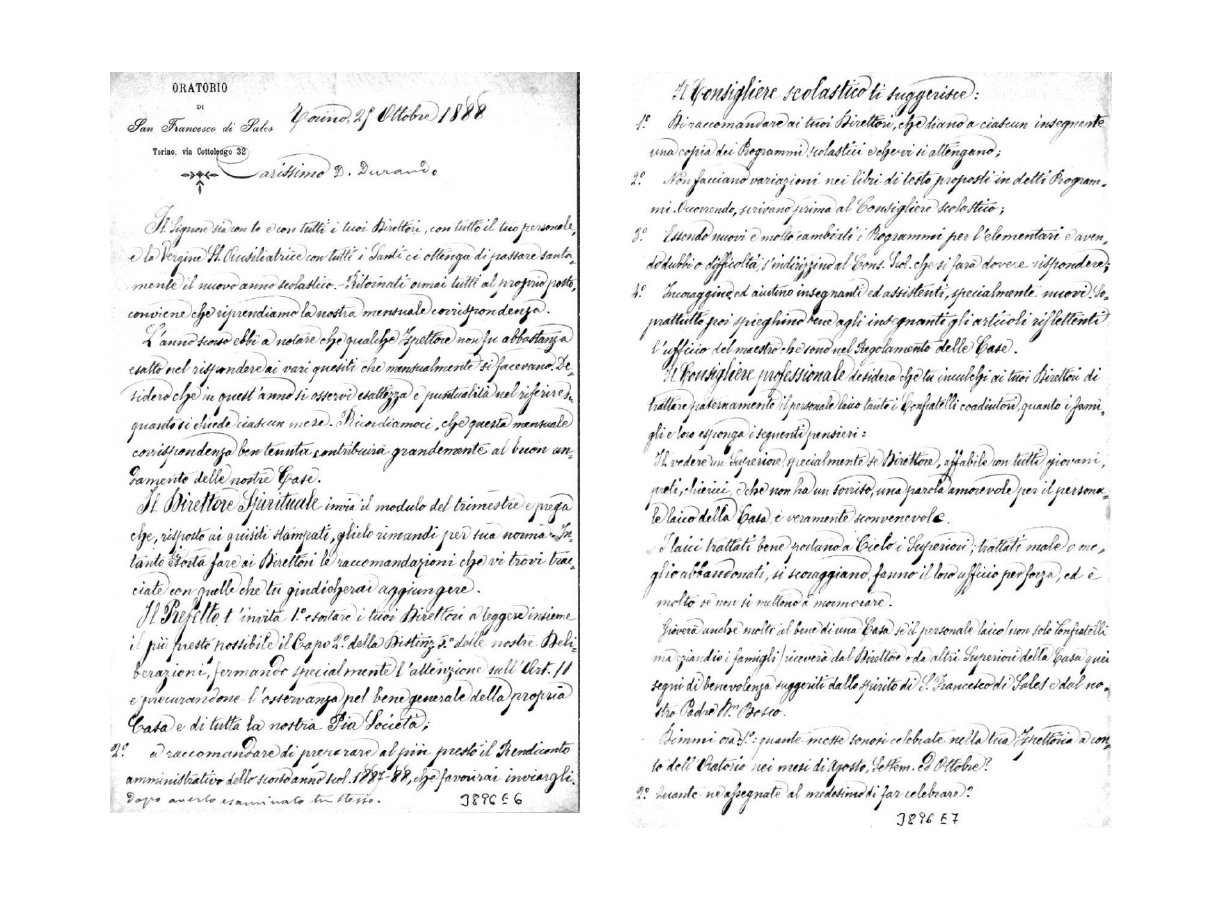 ORATORIO
DI
San Francesco di Sales
Torino, via Cottolengo 32
Torino, 25 Ottobre 1888
Carissimo D. Durando
Il Signore sia con te e con tutti i tuoi Direttori, con tutto il tuo personale,
e la Vergine SS. Ausiliatrice con tutti i Santi ci ottenga di passare santa-
mente il nuovo anno scolastico. Ritornati omai tutti al proprio posto,
conviene che riprendiamo la nostra mensuale corrispondenza.
L'anno scorso ebbi a notare che qualche Ispettore non fu abbastanza
esatto nel rispondere ai vari quesiti che mensualmente si facevano. De-
sidero che in quest'anno si osservi esattezza e puntualità nel riferire
quanto si chiede ciascun mese. Ricordiamoci, che questa mensuale
corrispondenza ben tenuta contribuirà grandemente al buon an-
damento delle nostre Case.
Il Direttore Spirituale invia il modulo del trimestre e prega
che, risposto ai quisiti stampati, glielo rimandi per sua norma. In-
tanto esorta fare ai Direttori le raccomandazioni che vi trovi trac-
ciate con quelle che tu giudicherai aggiungere.
Il Prefetto, t'invita 1.° esortare i tuoi Direttori a leggere insieme
il più presto possibile il Capo 2.° della Distinz. 5.ª delle nostre Deli-
berazioni, fermando specialmente l'attenzione sull'Art. 11
e procurandone l'osservanza pel bene generale della propria
Casa e di tutta la nostra Pia Società;
2.° a raccomandare di preparare al più presto il Rendiconto
amministrativo dello scorso anno scol. 1887-88, che favorirai inviargli
dopo averlo esaminato tu stesso.
3896 E 6
Il Consigliere scolastico ti suggerisce:
1.° Di raccomandare ai tuoi Direttori, che diano a ciascun insegnante
una copia dei Programmi scolastici e che vi si attengano;
2.° Non facciano variazioni nei libri di testo proposti in detti Program-
mi. Occorrendo, scrivano prima al Consigliere scolastico;
3.° Essendo nuovi e molto cambiati i Programmi per l'elementari e aven-
di dubbi o difficoltà, s'indirizzino al Cons. Scol. che si farà dovere rispondere;
4.° Incoraggino ed aiutino insegnanti ed assistenti, specialmente nuovi. So-
prattutto poi spieghino bene agli insegnanti gli articoli riflettenti
l'ufficio del maestro che sono nel Regolamento delle Case.
Il Consigliere professionale desidera che tu inculchi ai tuoi Direttori di
trattare paternamente il personale laico tanto i Confratelli coadiutori, quanto i fami-
gli e loro esponga i seguenti pensieri:
Il vedere un Superiore, specialmente se Direttore, affabile con tutti, giovani,
preti, chierici, e che non ha un sorriso, una parola amorevole per il persona-
le laico della Casa, è veramente sconvenevole.
I laici trattati bene portano a Cielo i Superiori; trattati male o me-
glio abbandonati, si scoraggiano, fanno il loro ufficio per forza, ed è
molto se non si mettono a mormorare.
Gioverà anche molto al bene di una Casa se il personale laico (non solo Confratelli
ma eziandio i famigli) riceverà dal Direttore o da altri Superiori della Casa quei
segni di benevolenza suggeriti dallo spirito di S. Francesco di Sales e dal no-
stro Padre D. Bosco.
Dimmi ora 1.°: quante messe sonosi celebrate nella tua Ispettoria a con-
to dell'Oratorio nei mesi di Agosto, Settem. ed Ottobre?
2.° Quante ne assegnate al medesimo di far celebrare?
3896 E 7